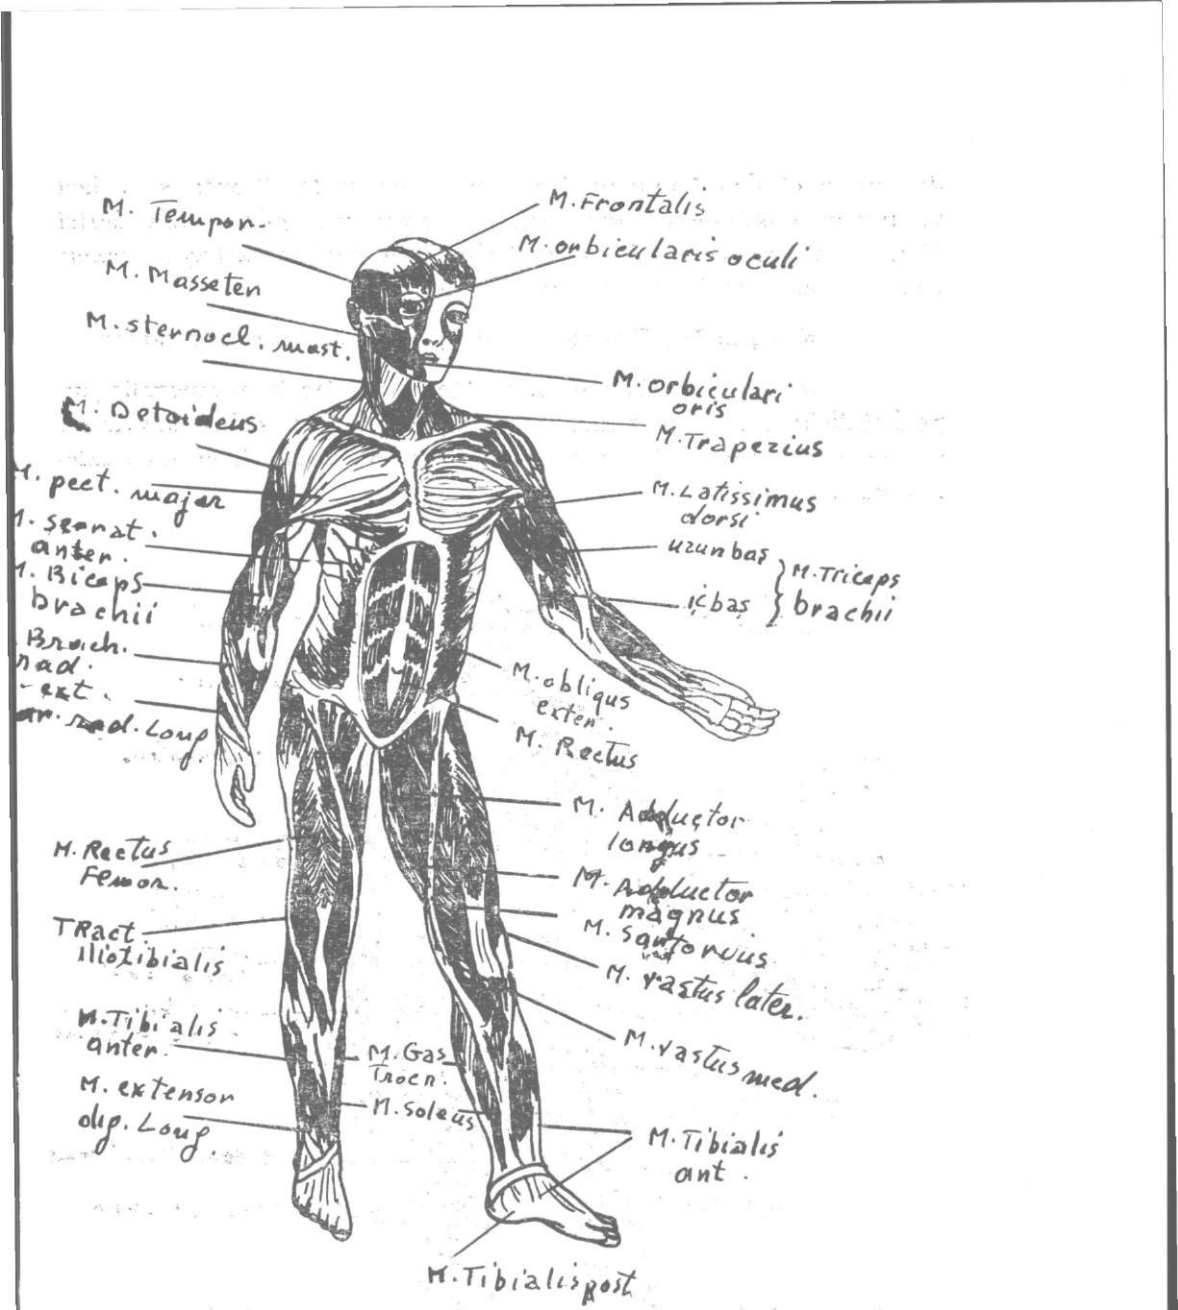 M. Tempor.
M. Masseter
M. sternocl. mast.
M. Detoideus
M. pect. major
M. serrat.
anter.
M. Biceps
brachii
Brach.
rad.
ext.
rad. Long.
M. Rectus
Femor.
TRact.
Iliotibialis
M. Tibialis
anter.
M. extensor
dig. Long.
M. Gas
Trocn.
M. Soleus
M. Frontalis
M. orbicularis oculi
M. orbiculari
oris
M. Trapezius
M. Latissimus
dorsi
uzunbaş
içbaş
M. Triceps
brachii
M. obliqus
exter.
M. Rectus
M. Adductor
longus
M. Adductor
magnus
M.
M. vastus later.
M. vastus med.
M. Tibialis
ant.
M. Tibialis post